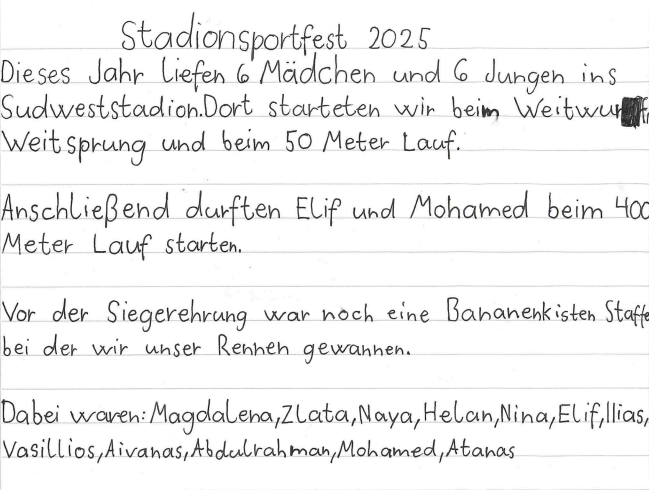 Stadionsportfest 2025
Dieses Jahr liefen 6 Mädchen und 6 Jungen ins
Sudweststadion.Dort starteten wir beim Weitwurf,
Weitsprung und beim 50 Meter Lauf.
Anschließend durften Elif und Mohamed beim 400
Meter Lauf starten.
Vor der Siegerehrung war noch eine Bananenkisten Staffe
bei der wir unser Rennen gewannen.
Dabei waren:Magdalena,Zlata,Naya,Helan,Nina,Elif,Ilias,
Vasillios,Aivanas,Abdulrahman,Mohamed,Atanas